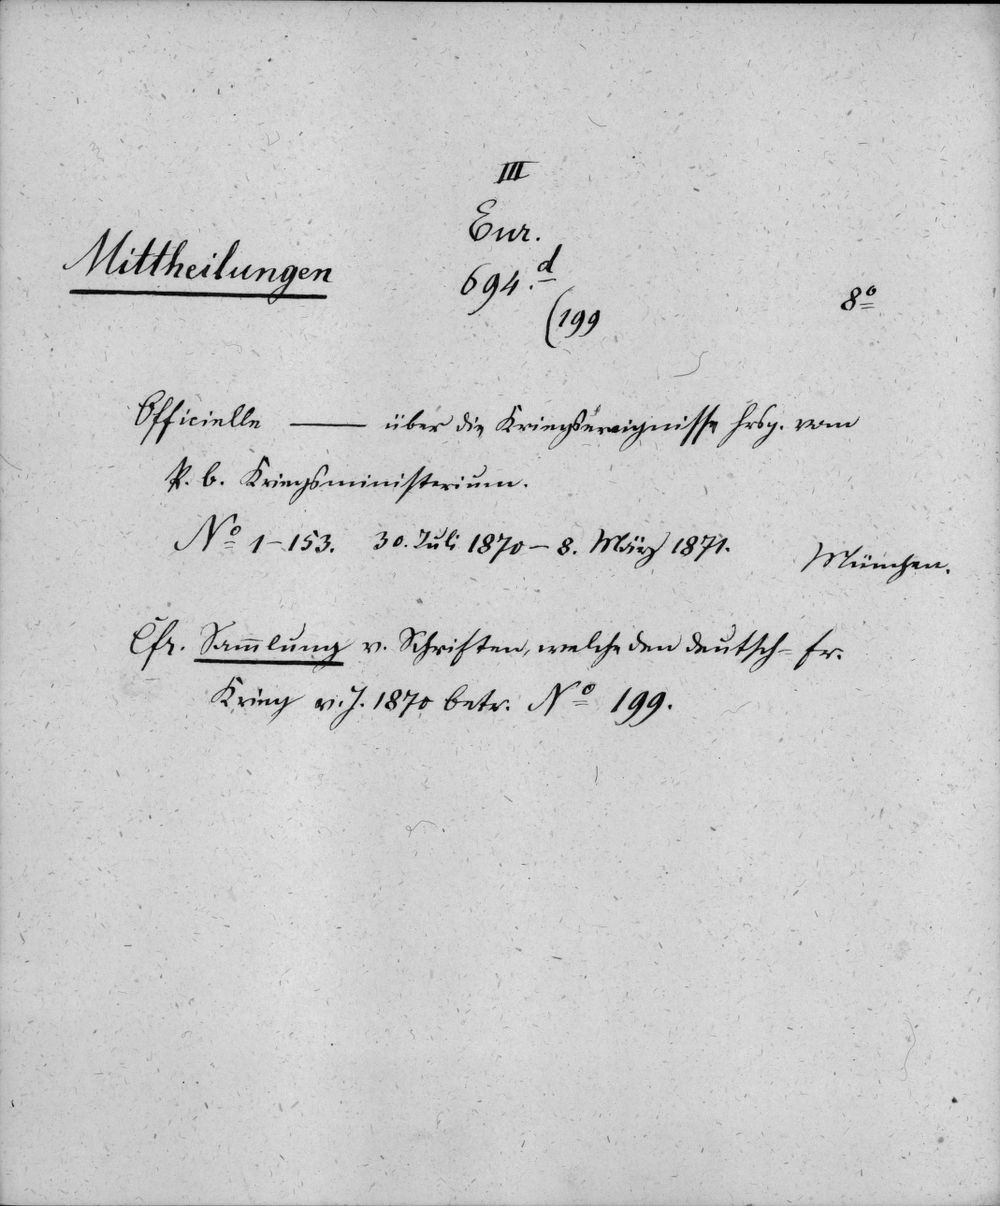 III
Eur.
Mittheilungen
694.d
(199
8º
Officielle —— über die Kriegsereignisse hrsg. vom
K. b. Kriegsministerium.
Nº 1-153. 30. Juli 1870 – 8. März 1871.
München.
Cfr. Sam̄lung v. Schriften, welche den deutsch- fr.
Krieg v. J. 1870 betr. Nº 199.